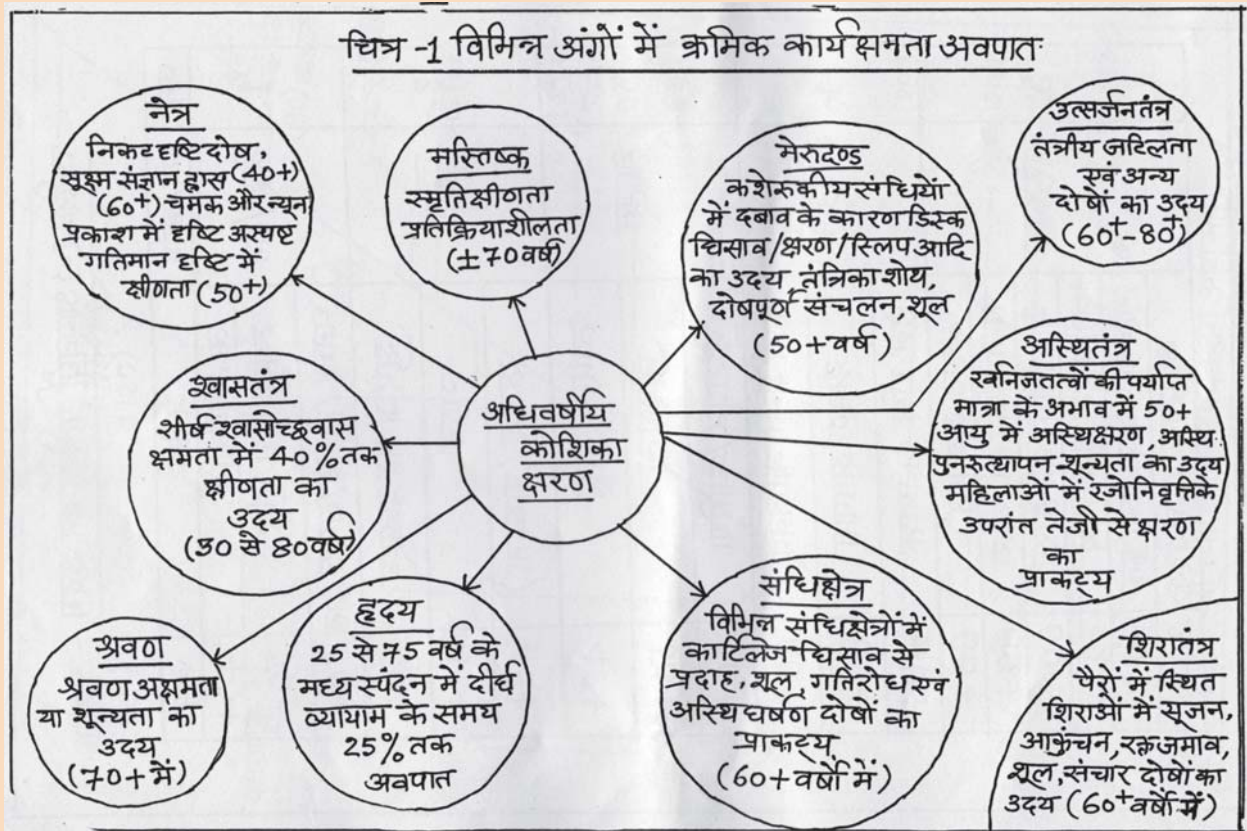 चित्र -1 विभिन्न अंगों में क्रमिक कार्य क्षमता अवपात
नेत्र
निकट दृष्टि दोष,
सूक्ष्म संज्ञान ह्रास (40+)
(60+) चमक और न्यून
प्रकाश में दृष्टि अस्पष्ट
गतिमान दृष्टि में
क्षीणता (50+)
मस्तिष्क
स्मृतिक्षीणता
प्रतिक्रियाशीलता
(±70 वर्ष)
मेरुदण्ड
कशेरुकीय संधियों
में दबाव के कारण डिस्क
घिसाव/क्षरण/स्लिप आदि
का उदय, तंत्रिका शोथ,
दोषपूर्ण संचलन, शूल
(50+ वर्ष)
उत्सर्जनतंत्र
तंत्रीय जटिलता
एवं अन्य
दोषों का उदय
(60+-80+)
श्वासतंत्र
शीर्ष श्वासोच्छवास
क्षमता में 40% तक
क्षीणता का
उदय
(30 से 80 वर्ष)
अधिवर्षीय
कोशिका
क्षरण
अस्थितंत्र
खनिजतत्वों की पर्याप्त
मात्रा के अभाव में 50+
आयु में अस्थिक्षरण, अस्थि
पुनरुत्थापन शून्यता का उदय
महिलाओं में रजोनिवृत्ति के
उपरांत तेजी से क्षरण
का
प्राकट्य
श्रवण
श्रवण अक्षमता
या शून्यता का
उदय
(70+ में)
हृदय
25 से 75 वर्ष के
मध्य स्पंदन में दीर्घ
व्यायाम के समय
25% तक
अवपात
संधिक्षेत्र
विभिन्न संधिक्षेत्रों में
कार्टिलेज घिसाव से
प्रदाह, शूल, गतिरोध एवं
अस्थि घर्षण दोषों का
प्राकट्य
(60+ वर्षों में)
शिरातंत्र
पैरों में स्थित
शिराओं में सूजन,
आकुंचन, रक्तजमाव,
शूल, संचार दोषों का
उदय (60+ वर्षों में)